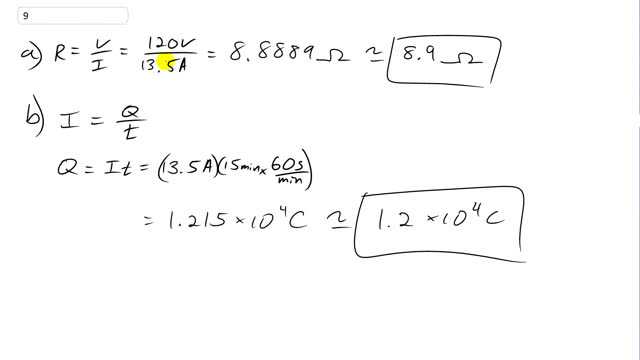 9
a) R = V/I = 120V/13.5A = 8.8889 Ω ≃ 8.9 Ω
b) I = Q/t
Q = It = (13.5A)(15min × 60s/min)
= 1.215 × 10⁴ C ≃ 1.2 × 10⁴ C